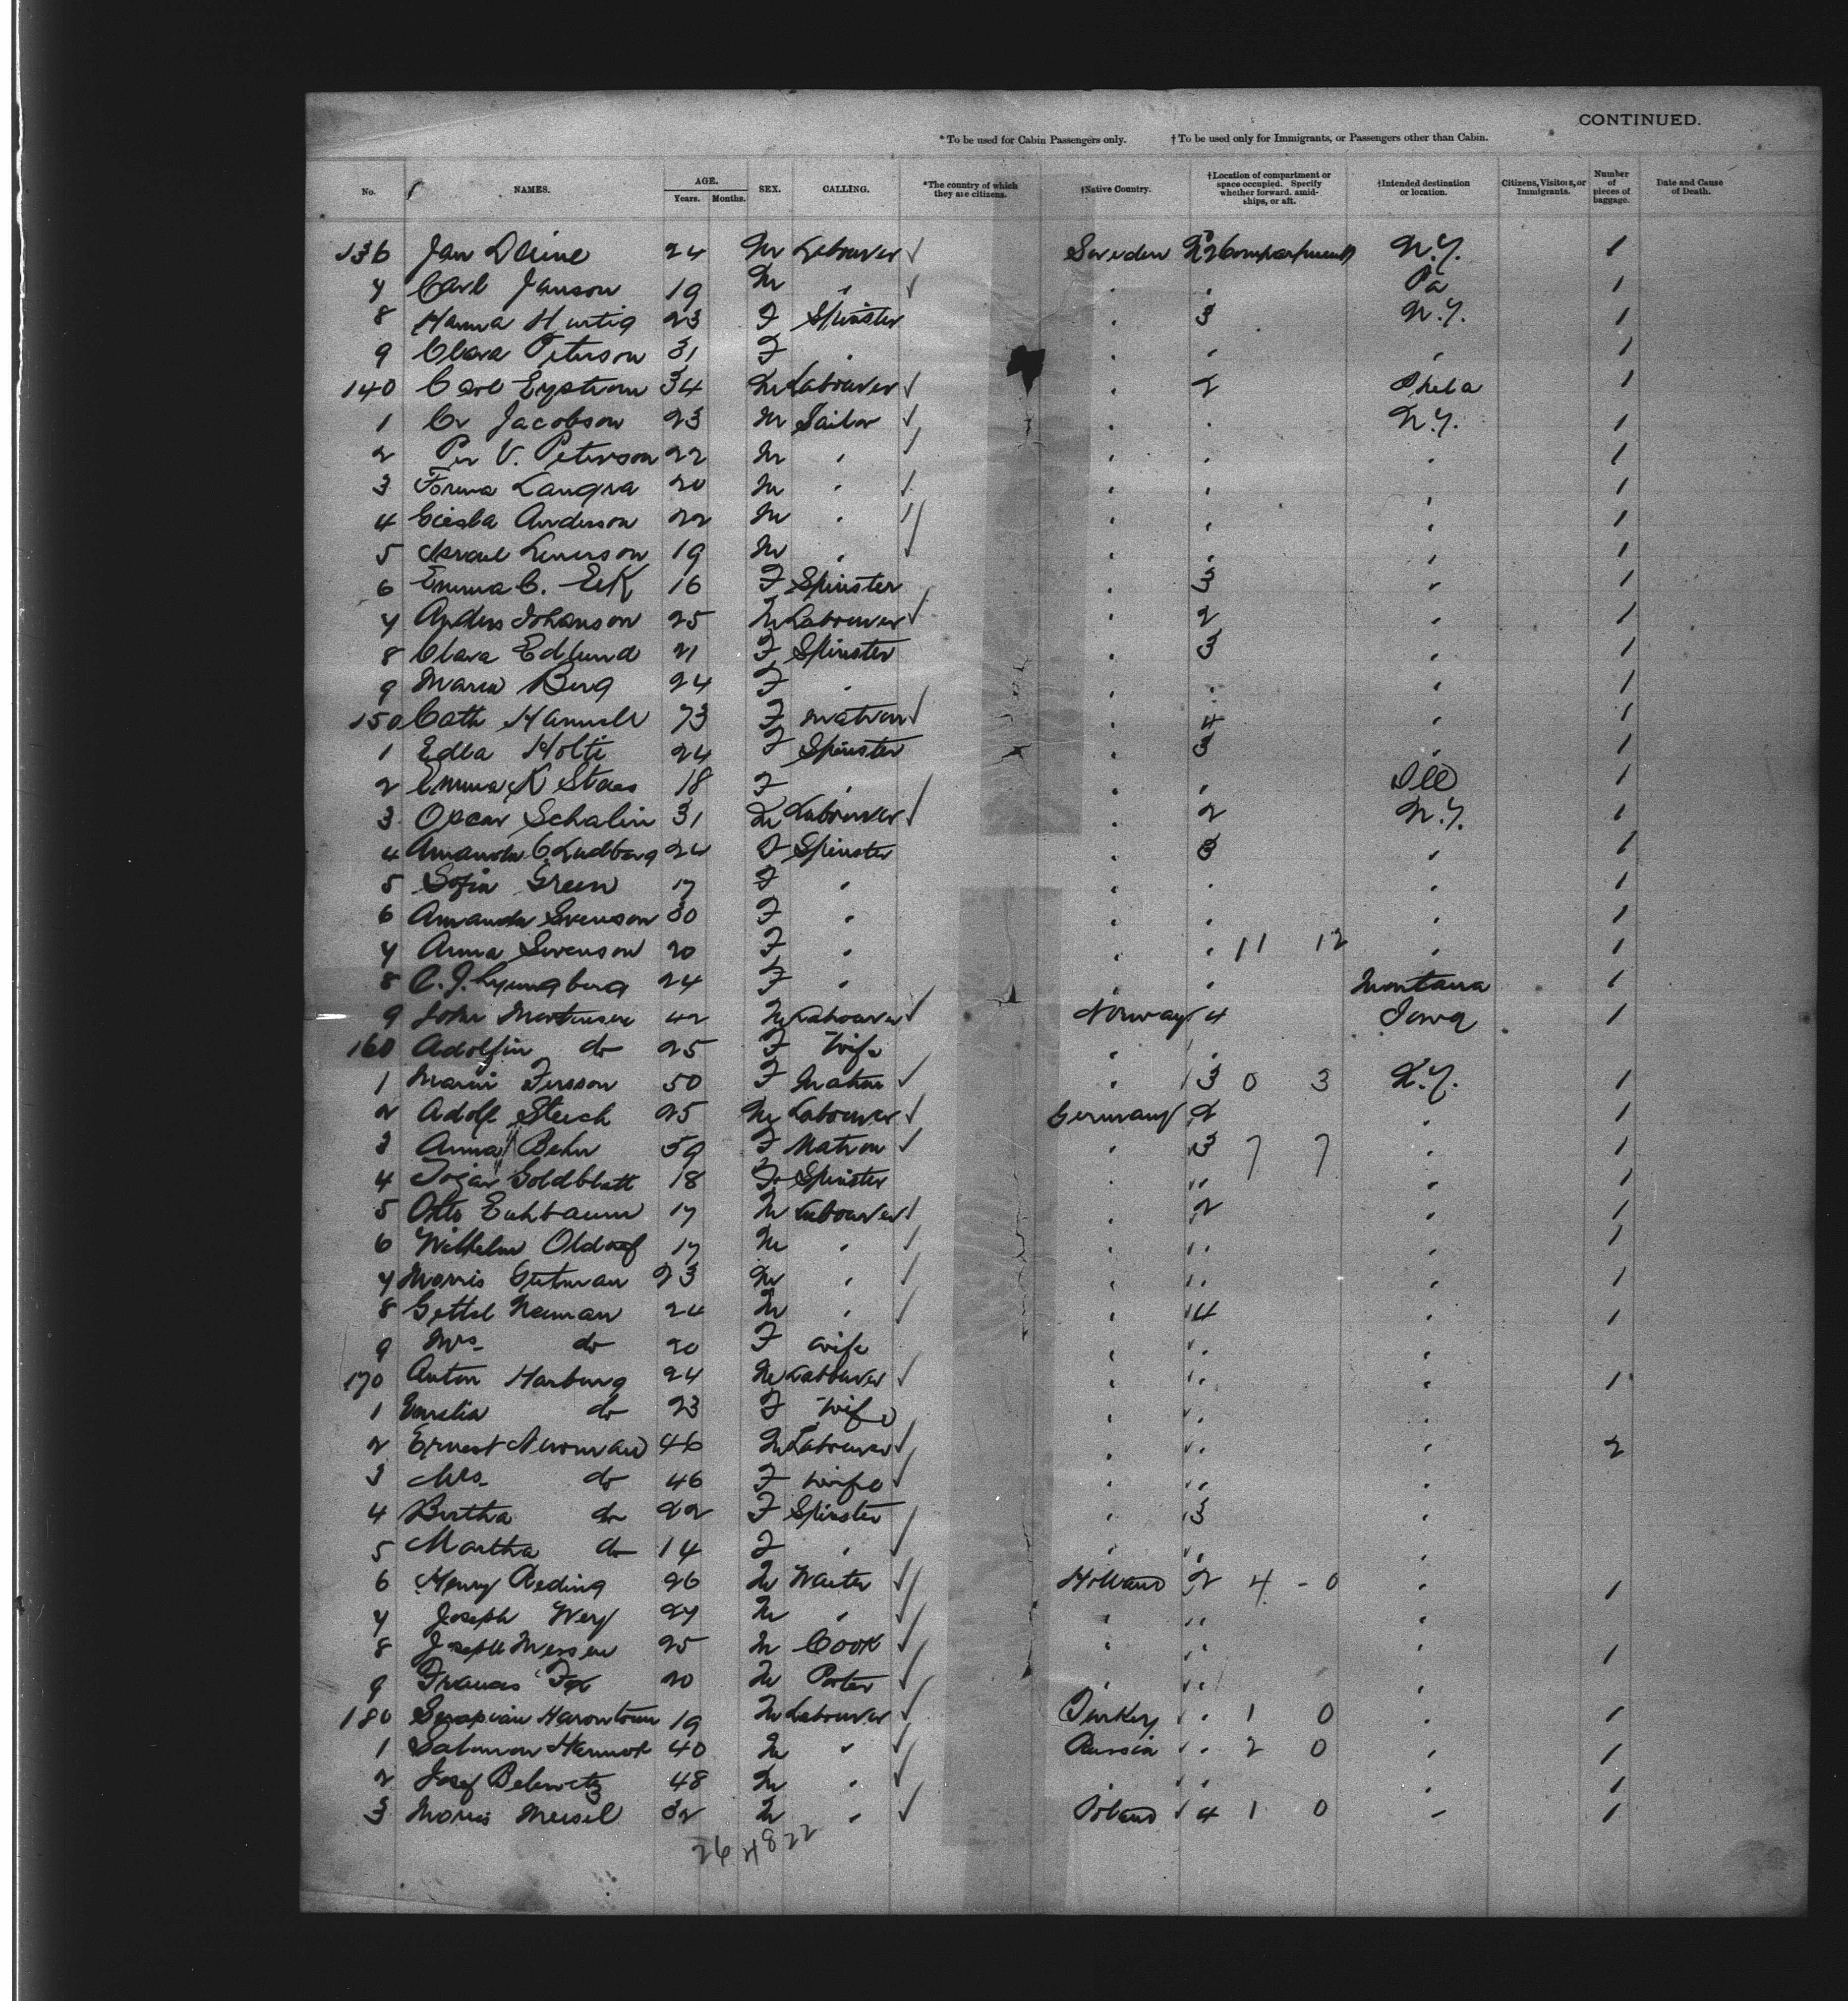 CONTINUED.
* To be used for Cabin Passengers only. † To be used only for Immigrants, or Passengers other than Cabin.
No. NAMES. AGE. Years. Months. SEX. CALLING. *The country of which they are citizens. †Native Country. †Location of compartment or space occupied. Specify whether forward, amidships, or aft. †Intended destination or location. Citizens, Visitors, or Immigrants. Number of pieces of baggage. Date and Cause of Death.
136 Jan 24 M Labourer ✓ Sweden No 2 Compartment N.Y. 1
7 Carl Janson 19 M " ✓ " " Pa 1
8 Hanna Hurtig 23 F Spinster " 3 N.Y. 1
9 Clara Peterson 31 F " " " " 1
140 Carl Enstrom 34 M Labourer ✓ " 2 Phila 1
1 Cr Jacobson 23 M Sailor ✓ " " N.Y. 1
2 Per V. Peterson 22 M " ✓ " " " 1
3 20 M " ✓ " " " 1
4 Anderson 22 M " ✓ " " " 1
5 19 M " ✓ " " " 1
6 Emma C. Eek 16 F Spinster " 3 " 1
7 Anders Johanson 25 M Labourer ✓ " 2 " 1
8 Clara Edlund 21 F Spinster " 3 " 1
9 Maria Berg 24 F " " " " 1
150 Cath 73 F Matron ✓ " 4 " 1
1 Edla Holti 24 F Spinster " 3 " 1
2 Emma K 18 F " ✓ " " Ill 1
3 Oscar Schalin 31 M Labourer ✓ " 2 N.Y. 1
4 Amanda C. Lindberg 24 F Spinster " 3 " 1
5 Sofia Green 17 F " " " " 1
6 Amanda Svenson 30 F " " " " 1
7 Anna Svenson 20 F " " " 11 12 " 1
8 C. J. Ljungberg 24 F " " " Montana 1
9 John Martinsen 42 M Labourer ✓ Norway 4 Iowa 1
160 Adolfin do 25 F Wife " "
1 Marie 50 F Matron ✓ " 3 0 3 N.Y. 1
2 Adolf Steich 25 M Labourer ✓ Germany 2 " 1
3 Anna Behn 59 F Matron ✓ " 3 7 7 " 1
4 Goldblatt 18 F Spinster " " " 1
5 Otto Eichbaum 17 M Labourer ✓ " 2 " 1
6 Wilhelm Oldorf 17 M " ✓ " " " 1
7 Morris Gutman 23 M " ✓ " " " 1
8 Gettel Neuman 24 M " ✓ " 4 " 1
9 Mrs. do 20 F Wife " " "
170 Anton Harburg 24 M Labourer ✓ " " " 1
1 Emelia do 23 F Wife " " "
2 Ernest Newman 46 M Labourer ✓ " " " 2
3 Mrs. do 46 F Wife ✓ " " "
4 Bertha do 22 F Spinster ✓ " 3 "
5 Martha do 14 F " ✓ " " "
6 Henry Reding 26 M Waiter ✓ Holland 2 4 - 0 " 1
7 Joseph Wey 27 M " ✓ " " "
8 Joseph 25 M Cook ✓ " " " 1
9 Francis Fox 20 M Porter ✓ " " "
180 19 M Labourer ✓ Turkey " 1 0 " 1
1 Salomon 40 M " ✓ Russia " 2 0 " 1
2 Josef 48 M " ✓ " " " 1
3 Morris Meisel 32 M " ✓ Poland 4 1 0 " 1
26 4 8 22